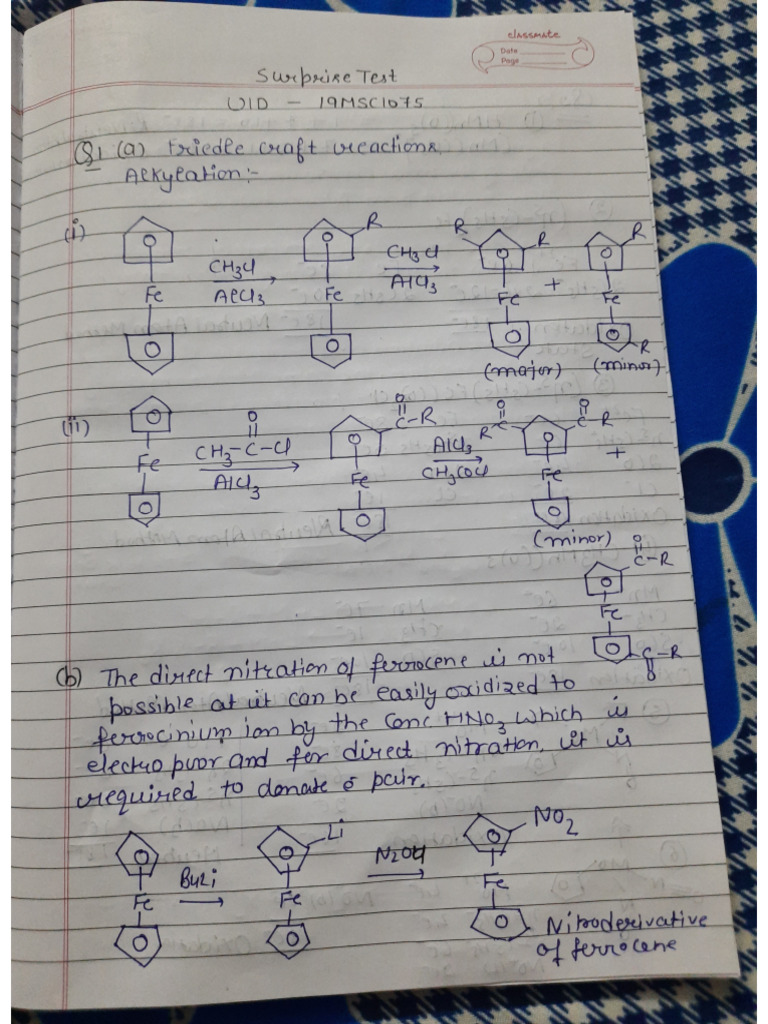 classmate
Date
Page
Surprise Test
UID - 19MSC1075
Q1 (a) Friedle craft reactions
Alkylation:-
(i)
R
CH3Cl
AlCl3
Fe
Fe
CH3Cl
AlCl3
R
R
Fe
+
R
Fe
R
(major)
(minor)
(ii)
Fe
O
CH3-C-Cl
AlCl3
O
C-R
Fe
AlCl3
CH3COCl
O
R C
O
C-R
Fe
+
(minor)
O
C-R
Fe
C-R
O
(b) The direct nitration of ferrocene is not
possible at it can be easily oxidized to
ferrocinium ion by the Conc HNO3 which is
electro puor and for direct nitration, it is
required to donate e pair.
Fe
BuLi
Li
Fe
N2O4
NO2
Fe
Nitroderivative
of ferrocene